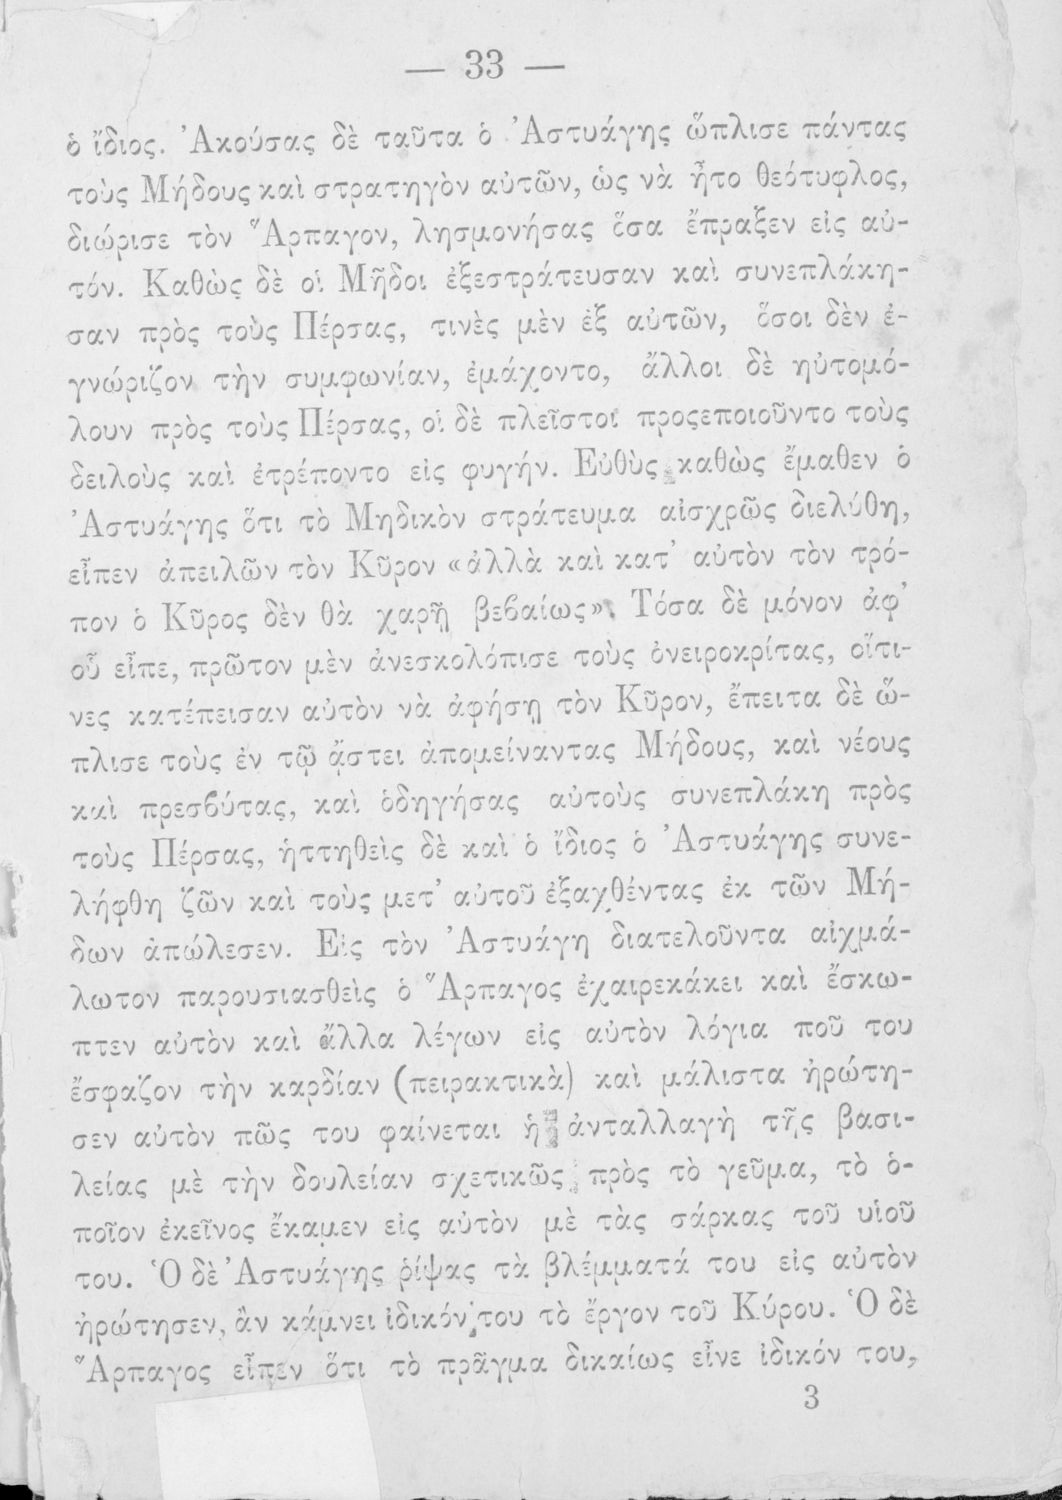 — 33 —
ὁ ἴδιος. Ἀκούσας δὲ ταῦτα ὁ Ἀστυάγης ὥπλισε πάντας
τοὺς Μήδους καὶ στρατηγὸν αὐτῶν, ὡς νὰ ἦτο θεότυφλος,
διώρισε τὸν Ἅρπαγον, λησμονήσας ὅσα ἔπραξεν εἰς αὐ-
τόν. Καθὼς δὲ οἱ Μῆδοι ἐξεστράτευσαν καὶ συνεπλάκη-
σαν πρὸς τοὺς Πέρσας, τινὲς μὲν ἐξ αὐτῶν, ὅσοι δὲν ἐ-
γνώριζον τὴν συμφωνίαν, ἐμάχοντο, ἄλλοι δὲ ηὐτομό-
λουν πρὸς τοὺς Πέρσας, οἱ δὲ πλεῖστοι προςεποιοῦντο τοὺς
δειλοὺς καὶ ἐτρέποντο εἰς φυγήν. Εὐθὺς καθὼς ἔμαθεν ὁ
Ἀστυάγης ὅτι τὸ Μηδικὸν στράτευμα αἰσχρῶς διελύθη,
εἶπεν ἀπειλῶν τὸν Κῦρον «ἀλλὰ καὶ κατ' αὐτὸν τὸν τρό-
πον ὁ Κῦρος δὲν θὰ χαρῇ βεβαίως». Τόσα δὲ μόνον ἀφ'
οὗ εἶπε, πρῶτον μὲν ἀνεσκολόπισε τοὺς ὀνειροκρίτας, οἵτι-
νες κατέπεισαν αὐτὸν νὰ ἀφήσῃ τὸν Κῦρον, ἔπειτα δὲ ὥ-
πλισε τοὺς ἐν τῷ ἄστει ἀπομείναντας Μήδους, καὶ νέους
καὶ πρεσβύτας, καὶ ὁδηγήσας αὐτοὺς συνεπλάκη πρὸς
τοὺς Πέρσας, ἡττηθεὶς δὲ καὶ ὁ ἴδιος ὁ Ἀστυάγης συνε-
λήφθη ζῶν καὶ τοὺς μετ' αὐτοῦ ἐξαχθέντας ἐκ τῶν Μή-
δων ἀπώλεσεν. Εἰς τὸν Ἀστυάγη διατελοῦντα αἰχμά-
λωτον παρουσιασθεὶς ὁ Ἅρπαγος ἐχαιρεκάκει καὶ ἔσκω-
πτεν αὐτὸν καὶ ἄλλα λέγων εἰς αὐτὸν λόγια ποῦ του
ἔσφαζον τὴν καρδίαν (πειρακτικὰ) καὶ μάλιστα ἠρώτη-
σεν αὐτὸν πῶς του φαίνεται ἡ ἀνταλλαγὴ τῆς βασι-
λείας μὲ τὴν δουλείαν σχετικῶς πρὸς τὸ γεῦμα, τὸ ὁ-
ποῖον ἐκεῖνος ἔκαμεν εἰς αὐτὸν μὲ τὰς σάρκας τοῦ υἱοῦ
του. Ὁ δὲ Ἀστυάγης ῥίψας τὰ βλέμματά του εἰς αὐτὸν
ἠρώτησεν, ἂν κάμνει ἰδικόν του τὸ ἔργον τοῦ Κύρου. Ὁ δὲ
Ἅρπαγος εἶπεν ὅτι τὸ πρᾶγμα δικαίως εἶνε ἰδικόν του,
3